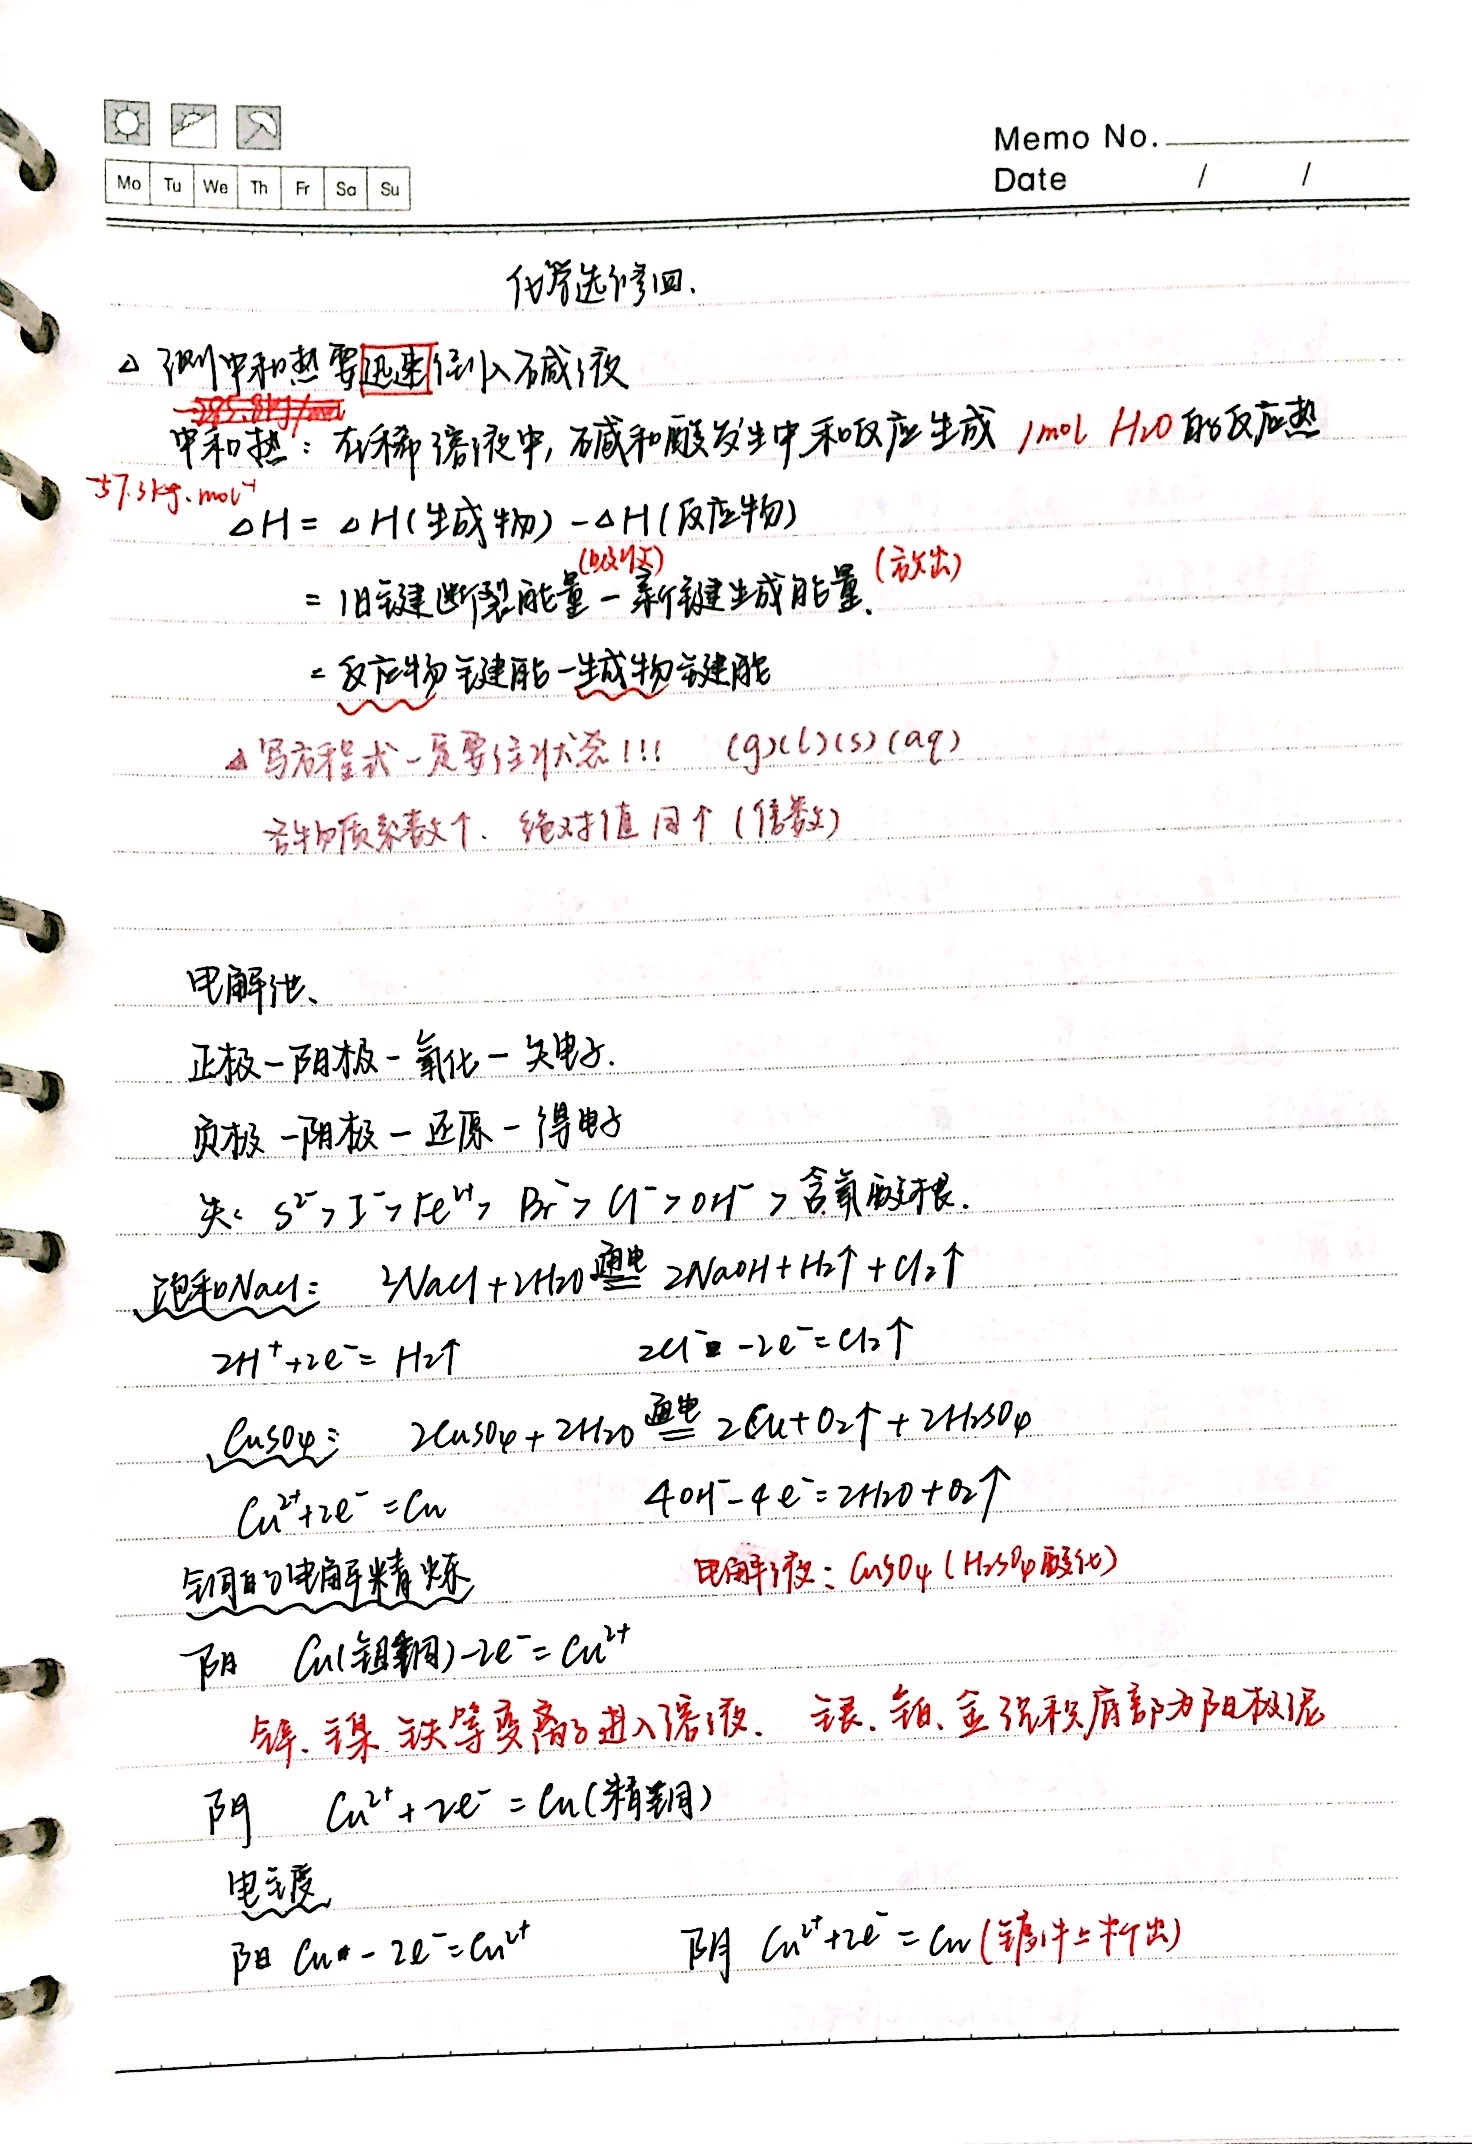 Memo No.
Mo Tu We Th Fr Sa Su
Date / /
化学选修四.
△ 测中和热要迅速倒入碱液
中和热：在稀溶液中,碱和酸发生中和反应生成 1mol H₂O的反应热
-57.3kJ·mol⁻¹
△H = △H(生成物) - △H(反应物)
(吸收) (放出)
= 旧键断裂能量 - 新键生成能量.
= 反应物键能 - 生成物键能
△ 写方程式一定要注状态!!! (g)(l)(s)(aq)
各物质系数↑. 绝对值同↑(倍数)
电解池、
正极-阳极-氧化-失电子.
负极-阴极-还原-得电子
失: S²⁻>I⁻>Fe²⁺>Br⁻>Cl⁻>OH⁻>含氧酸根.
饱和NaCl: 2NaCl+2H₂O 通电 = 2NaOH+H₂↑+Cl₂↑
2H⁺+2e⁻=H₂↑ 2Cl⁻-2e⁻=Cl₂↑
CuSO₄: 2CuSO₄+2H₂O 通电 = 2Cu+O₂↑+2H₂SO₄
Cu²⁺+2e⁻=Cu 4OH⁻-4e⁻=2H₂O+O₂↑
铜的电解精炼 电解液: CuSO₄(H₂SO₄酸化)
阳 Cu(粗铜)-2e⁻=Cu²⁺
锌、镍 铁等变离子进入溶液. 银、铂、金沉积底部为阳极泥
阴 Cu²⁺+2e⁻=Cu(精铜)
电镀
阳 Cu-2e⁻=Cu²⁺ 阴 Cu²⁺+2e⁻=Cu(镀件上析出)